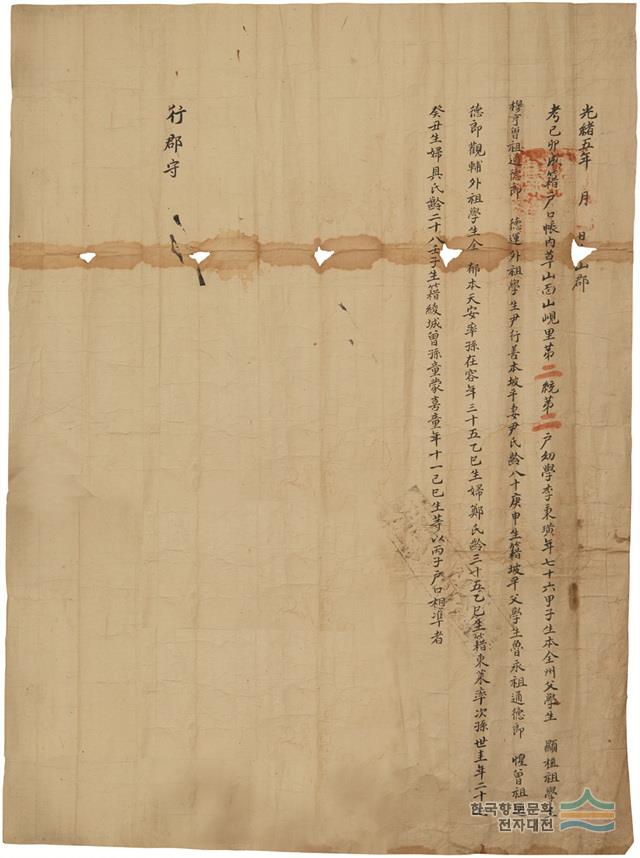 光緖五年　月　日　山郡
考己卯成籍戶口帳內草山面山峴里第二統第二戶幼學李東璜年七十六甲子生本全州父學生　顯植祖學生
穆亨曾祖通德郎　德運外祖學生尹行善本坡平妻尹氏齡八十庚申生籍坡平父學生魯永祖通德郎　惺曾祖通
德郎　觀輔外祖學生金　郁本天安率孫在容年三十五乙巳生婦鄭氏齡三十五乙巳生籍東萊率次孫世圭年二十七
癸丑生婦具氏齡二十八壬子生籍綾城曾孫童蒙喜童年十一己巳生等以丙子戶口相準者
行郡守
한국향토문화
전자대전